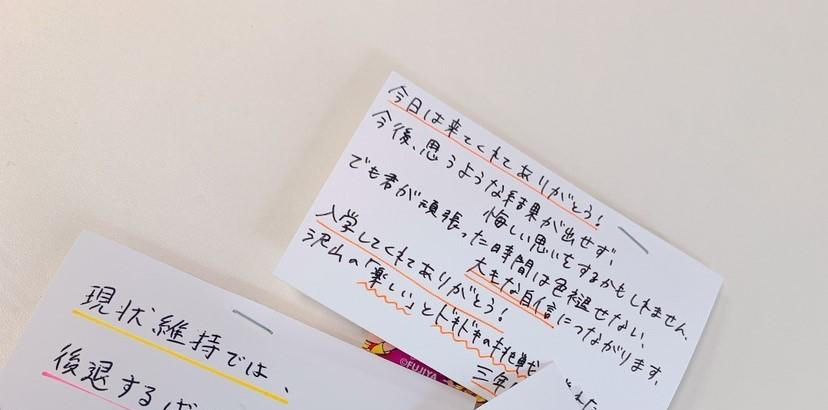 今日は来てくれてありがとう!
今後、思うような結果が出せず、
悔しい思いをするかもしれません。
でも君が頑張った時間は色褪せない。
大きな自信につながります。
入学してくれてありがとう!
沢山の「楽しい」とドキドキの挑戦
三年
現状維持では、
後退するば
©FUJIYA